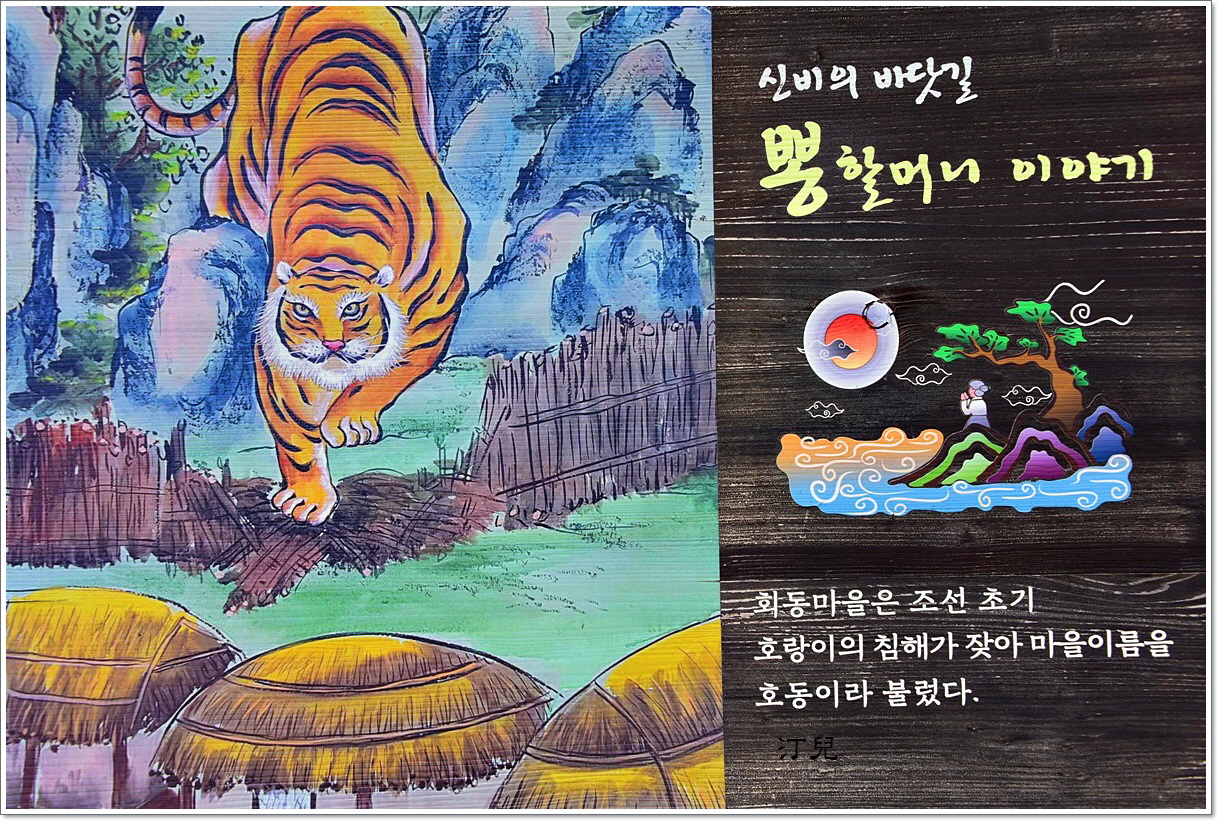 신비의 바닷길
뽕할머니 이야기
회동마을은 조선 초기
호랑이의 침해가 잦아 마을이름을
호동이라 불렀다.
汀兒